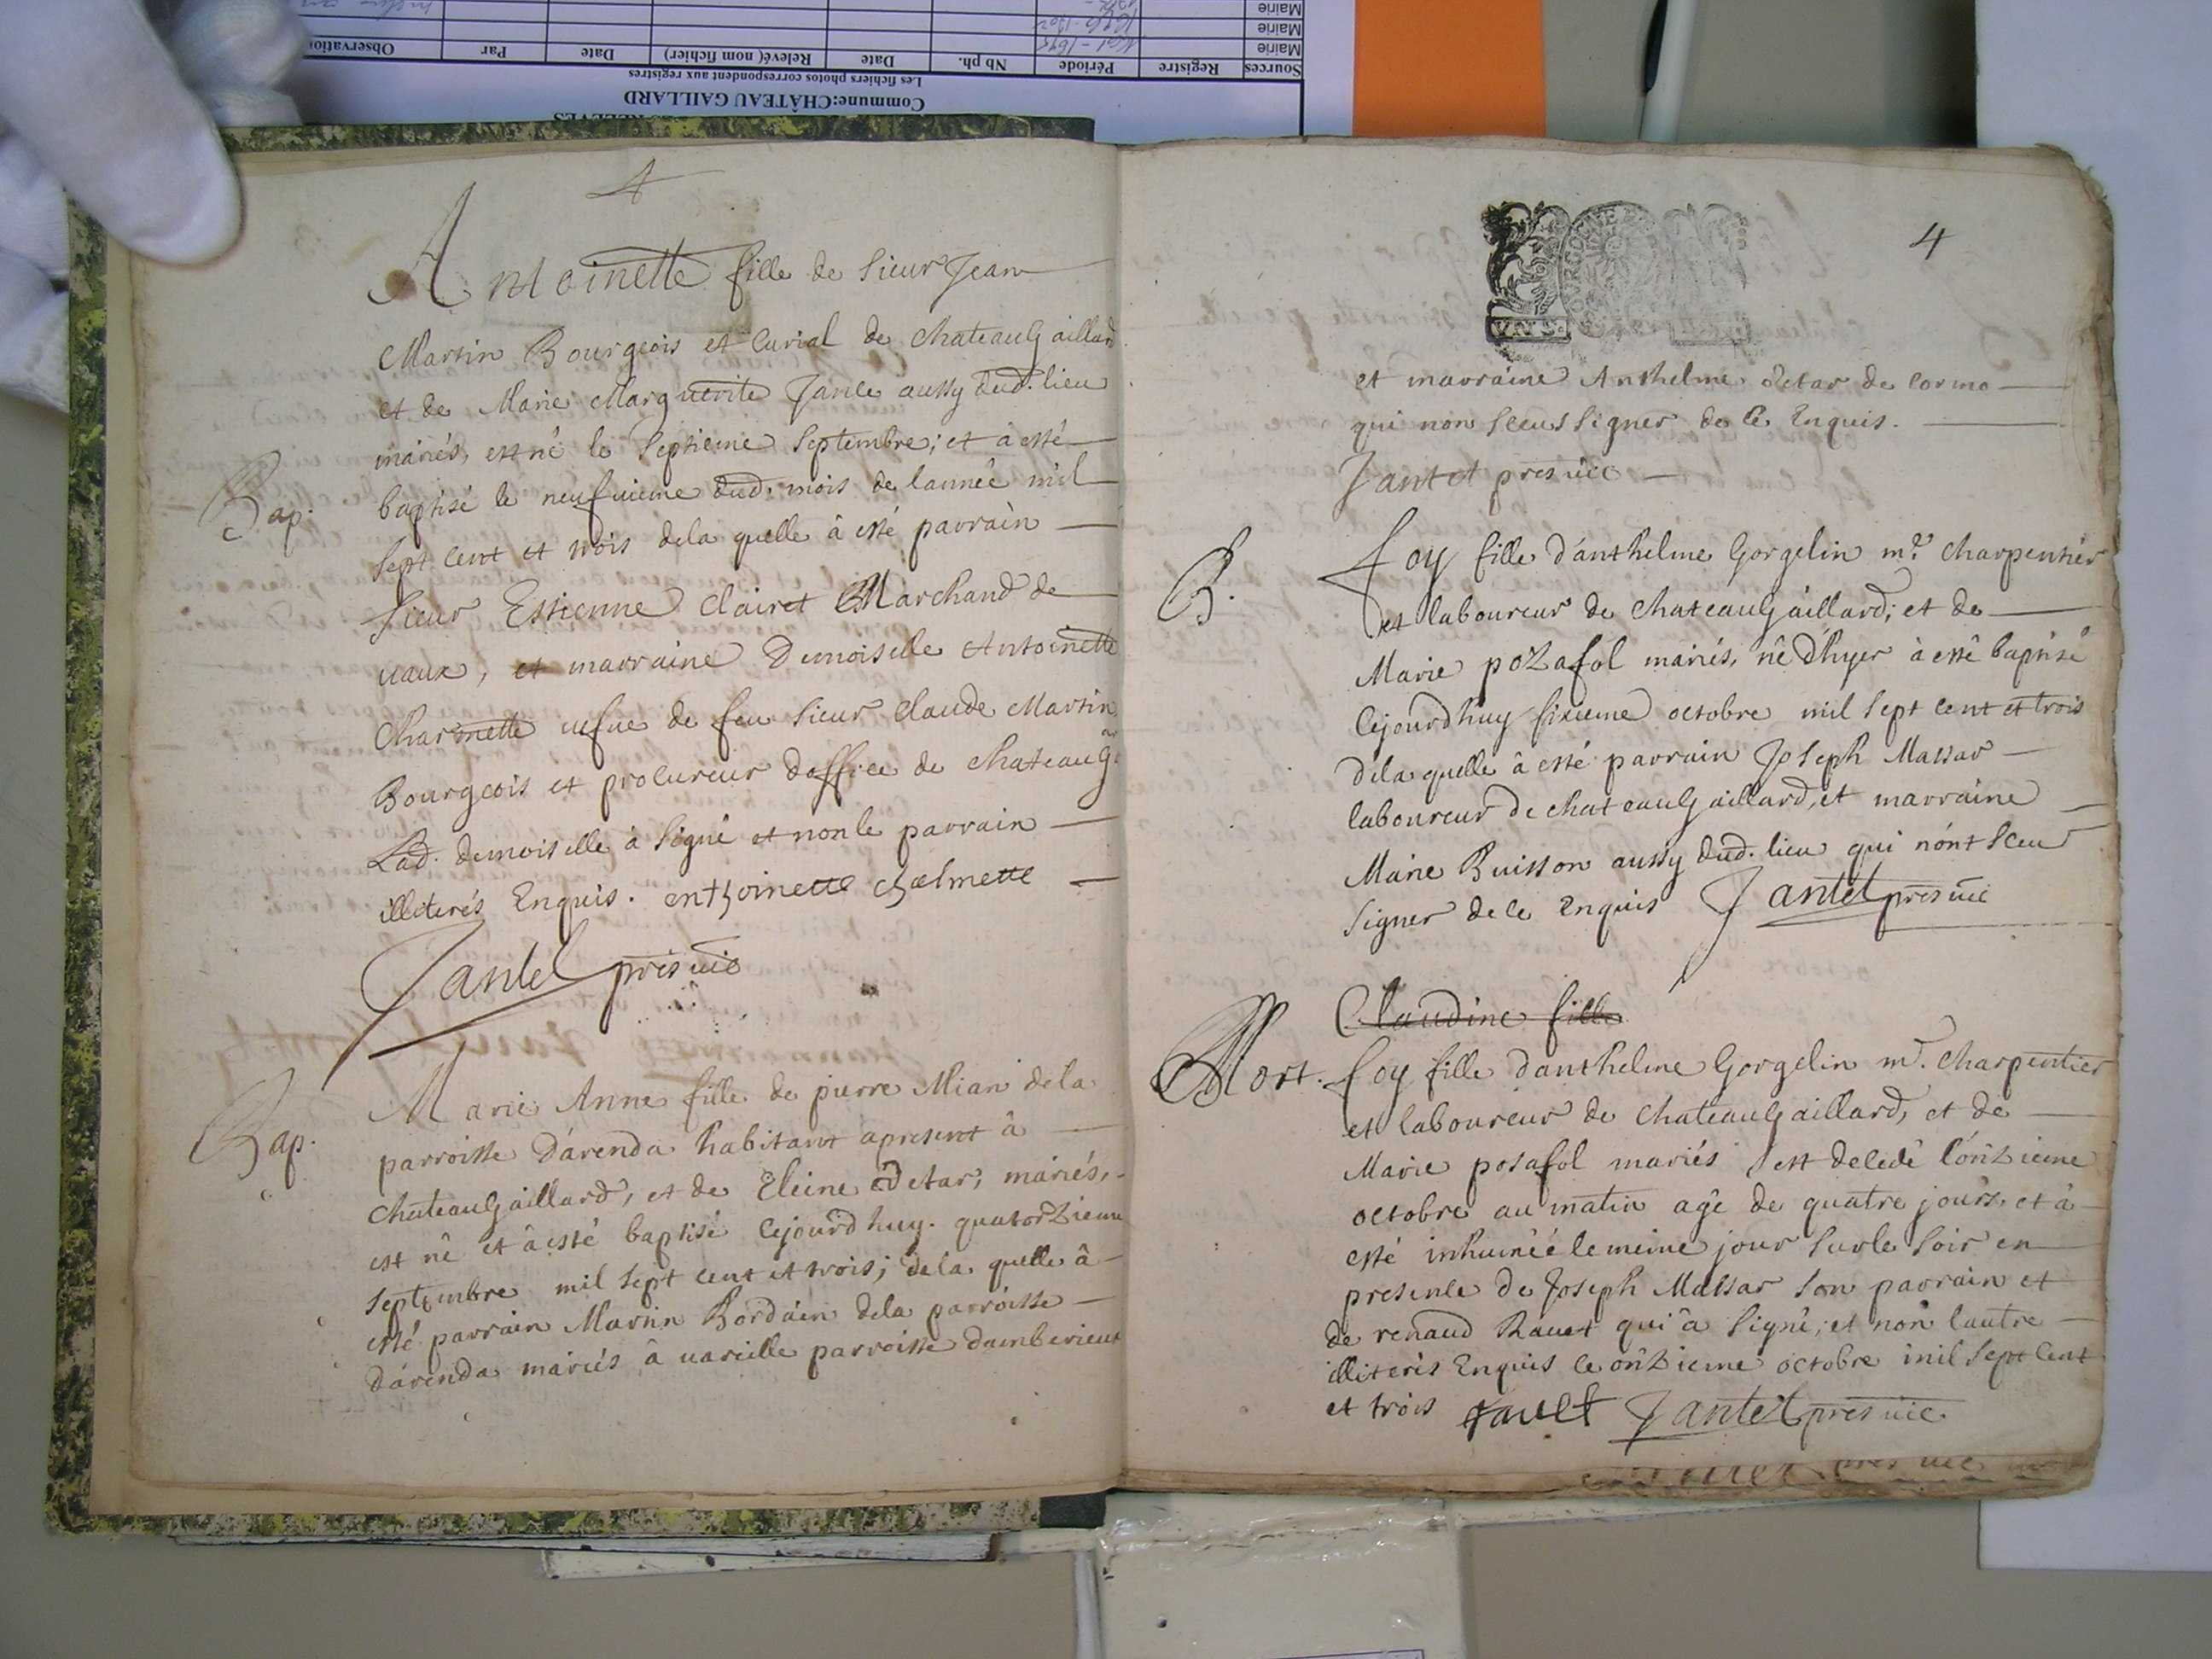 4
Antoinette fille de sieur Jean
Martin Bourgeois et curial de Chateaugaillard
et de Marie Marguerite Janle aussy dud. lieu
mariés, est né le septieme septembre; et à esté
Bap. baptisé le neufuieme dud. mois de lannée mil
sept cent et trois dela quelle à esté parrain
sieur Estienne Clairet Marchand de
uaux, et marraine Demoiselle Antoinette
Charmette uefue de feu sieur Claude Martin
Bourgeois et procureur doffice de chateaug.ar
Lad. demoiselle à signé et non le parrain
illiterés Enquis. enthoinette chalmette
Jantet pres uic
Marie Anne fille de pierre Mian dela
Bap. parroisse d'arenda habitant apresent à
chateaugaillard, et de Eleine detar, mariés,
est nê et à esté baptisé cejourdhuy. quatorzieme
septembre mil sept cent et trois; dela quelle à
esté parrain Martin Bordain dela parroisse
d'arenda mariés à uareille parroisse damberieux
4
et marraine Anthelme detar de cormo
qui non sceus signer de ce Enquis.
Jantet pres uic
B. foy fille d'anthelme Gorgelin mr. charpentier
et laboureur de chateaugaillard; et de
Marie pozafol mariés, nê d'hyer à esté baptisé
cejourdhuy sixieme octobre mil sept cent et trois
dela quelle à esté parrain Joseph Massar
laboureur de chateaugaillard, et marraine
Marie Buisson aussy dud. lieu qui n'ont sceu
signer de ce Enquis Jantet pres uic
Claudine fille
Mort. foy fille danthelme Gorgelin mr. charpentier
et laboureur de chateaugaillard, et de
Marie posafol mariés est decedé l'onzieme
octobre au matin agê de quatre jours et à
esté inhumêé le meme jour sur le soir en
presence de Joseph Massar son parrain et
de renaud Rauet qui à signé; et non lautre
illiterés Enquis ce onzieme octobre mil sept cent
et trois rauet Jantet pres uic.
Commune: CHÂTEAU GAILLARD
Les fichiers photos correspondent aux registres
Sources Registre Période Nb ph. Date Relevé( nom fichier) Date Par Observation
Mairie
Mairie
Mairie